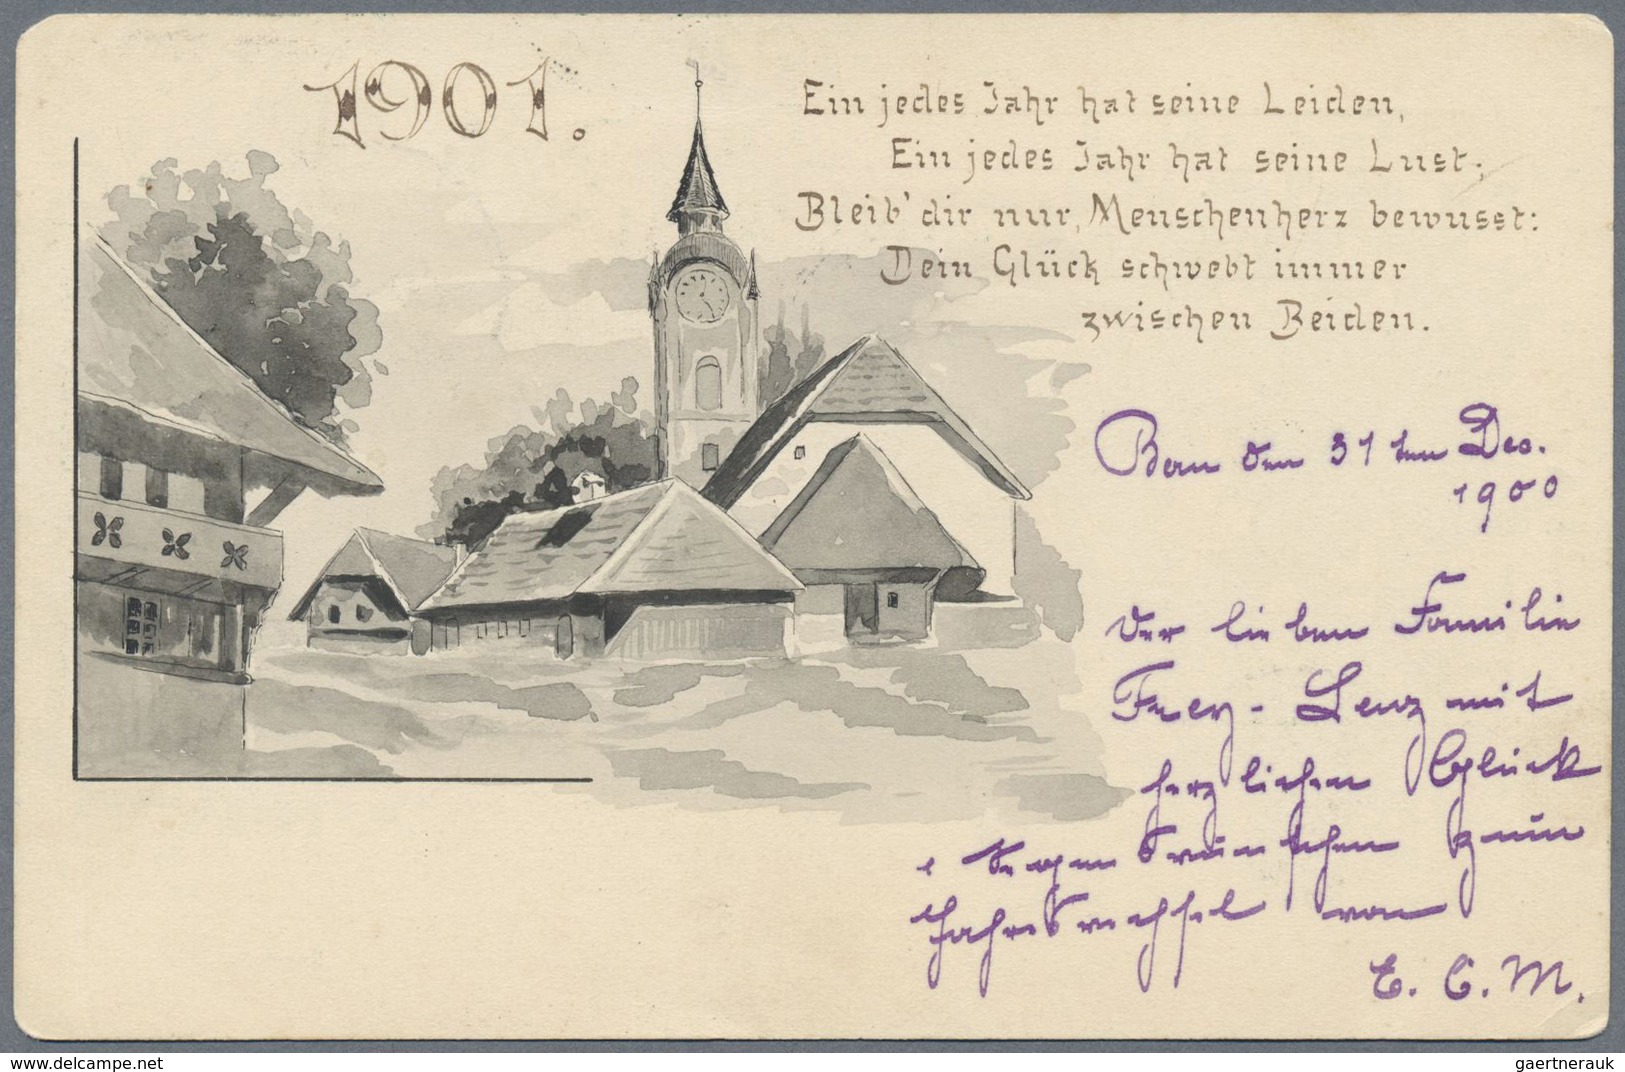 1901.
Ein jedes Jahr hat seine Leiden,
Ein jedes Jahr hat seine Lust;
Bleib' dir nur, Menschenherz bewusst:
Dein Glück schwebt immer
zwischen Beiden.
Bern den 31ten Dec.
1900
Der lieben Familie
Frey-Lenz mit
herzlichen Glück
& Segenswünschen zum
Jahreswechsel von
E. C. M.
www.delcampe.net
gaertnerauk